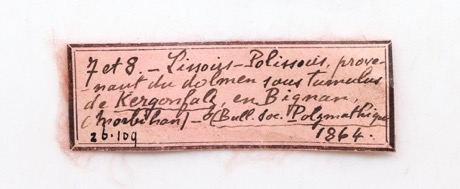 7 et 8. _ Lissoirs-Polissoirs, prove-
nant du dolmen sous tumulus
de Kergonfalz, en Bignan,
(Morbihan) _ (Bull. Soc. Polymathique
1864.
26.109